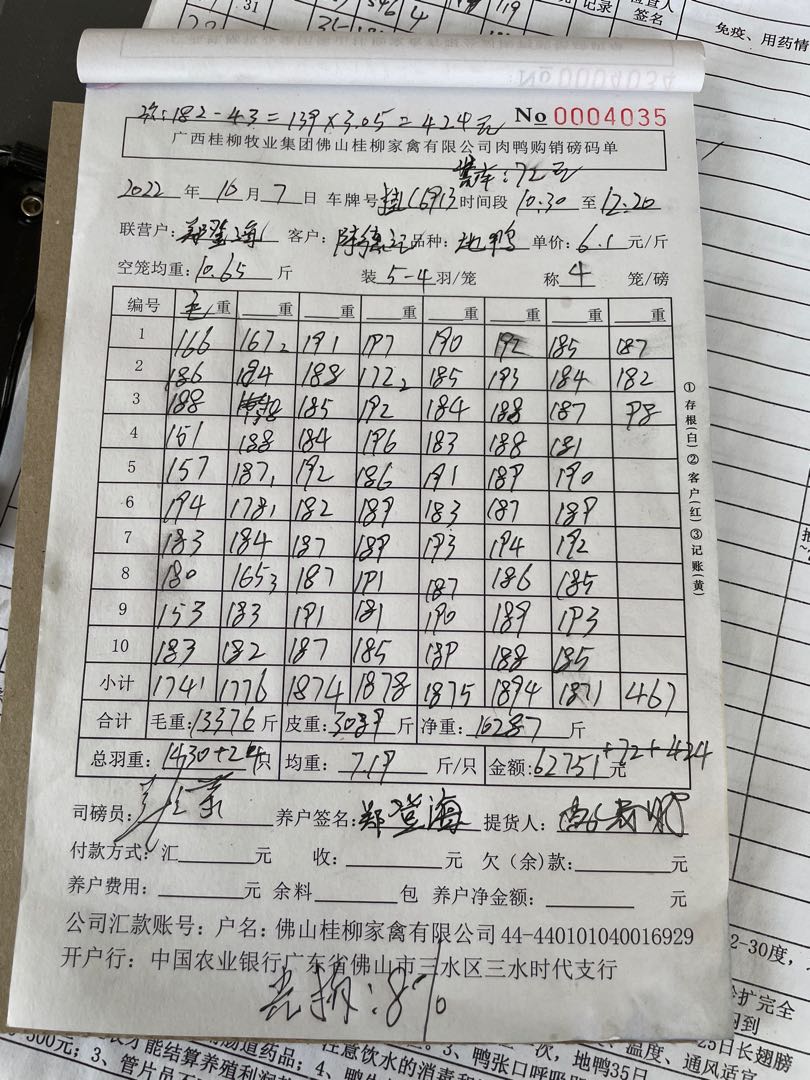 31 546 4 119 119 记录 检查人
签名 免疫、用药情
No 0004034
次:182-43=139×3.05=424元 No 0004035
广西桂柳牧业集团佛山桂柳家禽有限公司肉鸭购销磅码单
:72元
2022 年 10 月 7 日 车牌号 时间段 10.30 至 12.20
联营户: 郑登海 客户: 品种: 地鸭 单价: 6.1 元/斤
空笼均重: 10.65 斤 装 5-4 羽/笼 称 4 笼/磅
编号 毛重 重 重 重 重 重 重 重
1 166 167₂ 191 197 190 192 185 187
2 186 194 188 172₂ 185 193 184 182
3 188 185 192 184 188 187 98
4 151 188 184 196 183 188 181
5 157 187₁ 192 186 191 189 190
6 194 178₁ 182 189 183 187 189
7 183 184 187 189 193 194 192
8 180 165₃ 187 191 187 186 185
9 153 183 191 181 190 189 193
10 183 182 187 185 189 188 185
小计 1741 1776 1874 1878 1875 1894 1871 467
合计 毛重: 13376 斤 皮重: 3089 斤 净重: 10287 斤
总羽重: 1430+2 只 均重: 7.19 斤/只 金额: 62751元+72+424
司磅员: 养户签名: 郑登海 提货人:
付款方式:汇 元 收: 元 欠(余)款: 元
养户费用: 元 余料 包 养户净金额: 元
公司汇款账号:户名:佛山桂柳家禽有限公司 44-440101040016929
开户行:中国农业银行广东省佛山市三水区三水时代支行
:8%
①存根(白)②客户(红)③记账(黄)
2-30度,
扩完全
25日长翅膀
温度、通风适宜
地鸭35日
3、鸭张口呼吸
注意饮水的消毒和
-300元;3、管片员不
才能结算养殖利润